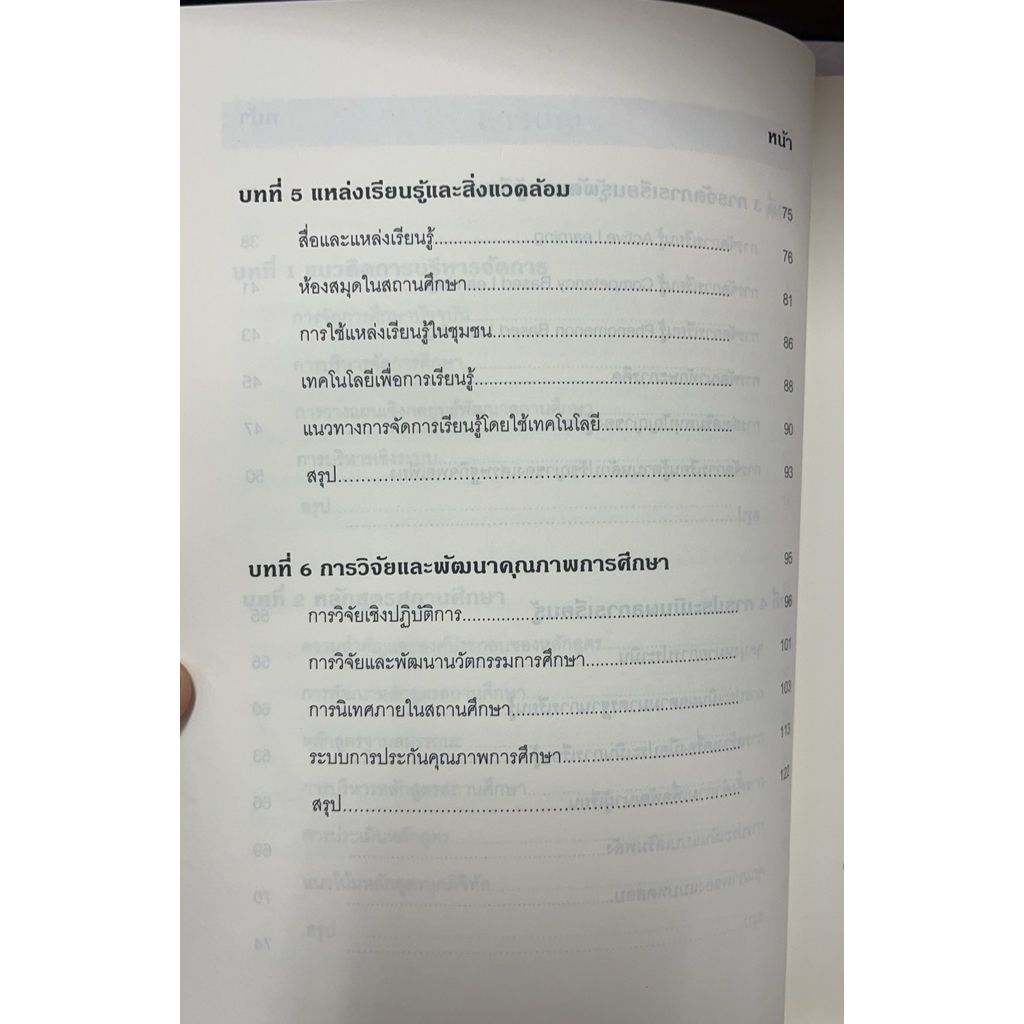 หน้า
บทที่ 5 แหล่งเรียนรู้และสิ่งแวดล้อม 75
สื่อและแหล่งเรียนรู้ 76
ห้องสมุดในสถานศึกษา 81
การใช้แหล่งเรียนรู้ในชุมชน 86
เทคโนโลยีเพื่อการเรียนรู้ 88
แนวทางการจัดการเรียนรู้โดยใช้เทคโนโลยี 90
สรุป 93
บทที่ 6 การวิจัยและพัฒนาคุณภาพการศึกษา 95
การวิจัยเชิงปฏิบัติการ 96
การวิจัยและพัฒนานวัตกรรมการศึกษา 101
การนิเทศภายในสถานศึกษา 103
ระบบการประกันคุณภาพการศึกษา 113
สรุป 122